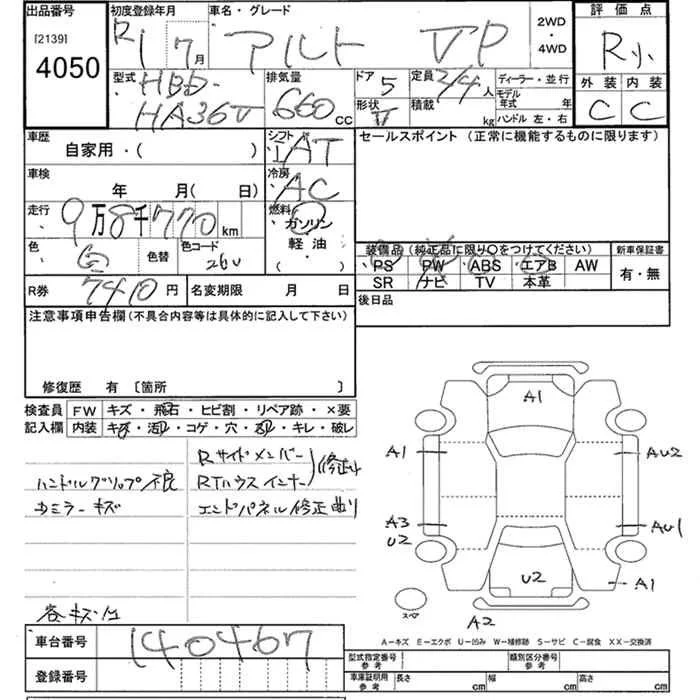 出品番号 初度登録年月 車名・グレード 2WD・4WD 評価点
[2139]
4050
R1 7月 アルト VP R小
外装 内装
C C
型式 HBD-HA36V 排気量 660cc ドア 5 定員 2/4人 ディーラー・並行
形状 V 積載 kg モデル年式 年
ハンドル 左・右
車歴 自家用・( ) シフト AT セールスポイント (正常に機能するものに限ります)
車検 年 月( 日) 冷房 AC
走行 9万8千770km 燃料 ガソリン・軽油・( )
色 白 色替 色コード 26U
装備品 (純正品に限り○をつけてください) 新車保証書
・PS PW ・ABS ・エアB AW 有・無
SR ナビ TV 本革
R券 7410円 名変期限 月 日 後日品
注意事項申告欄(不具合内容等は具体的に記入して下さい)
修復歴 有 〔箇所 〕
検査員記入欄 FW キズ・飛石・ヒビ割・リペア跡・×要
内装 キズ・汚れ・コゲ・穴・・キレ・破レ
Rサイドメンバー
ハンドルグリップ不良 RTハウスインナー 修正
カミラーキズ エンドパネル修正曲り
各キズ凹
A1
A1 AU2
A3 U2 AU1
U2 A1
スペア A2
A-キズ E-エクボ U-凹み W-補修跡 S-サビ C-腐食 XX-交換済
車台番号 140467 型式指定番号 参考 類別区分番号 参考
登録番号 車庫証明用 参考 長さ cm 幅 cm 高さ cm